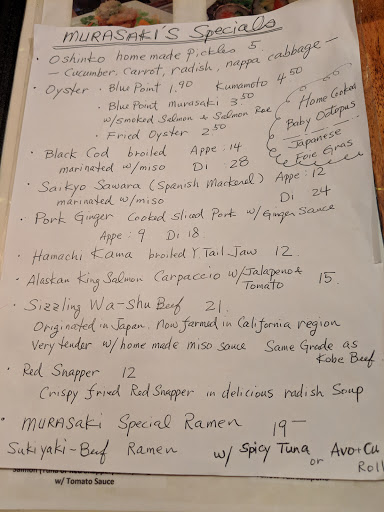 MURASAKI'S Specials
• Oshinko home made pickles 5
— Cucumber, Carrot, radish, nappa cabbage —
• Oyster • Blue Point 1.90 Kumamoto 4.50
• Blue Point Murasaki 3.50
w/smoked Salmon & Salmon Roe
• Fried Oyster 2.50
Home Cooked
Baby Octopus
Japanese
Foie Gras
• Black Cod broiled Appe : 14
marinated w/miso Di 28
• Saikyo Sawara (Spanish Mackerel) Appe : 12
marinated w/miso Di 24
• Pork Ginger Cooked Sliced Pork w/Ginger Sauce
Appe : 9 Di 18
• Hamachi Kama broiled Y. Tail Jaw 12.
• Alaskan King Salmon Carpaccio w/Jalapeno &
Tomato 15.
• Sizzling Wa-Shu Beef 21.
Originated in Japan. Now farmed in California region
Very tender w/ home made miso sauce Same Grade as
Kobe Beef
• Red Snapper 12
Crispy fried Red Snapper in delicious radish Soup
• MURASAKI Special Ramen 19 —
Sukiyaki-Beef Ramen w/ Spicy Tuna or Avo+Cu
Roll
w/ Tomato Sauce